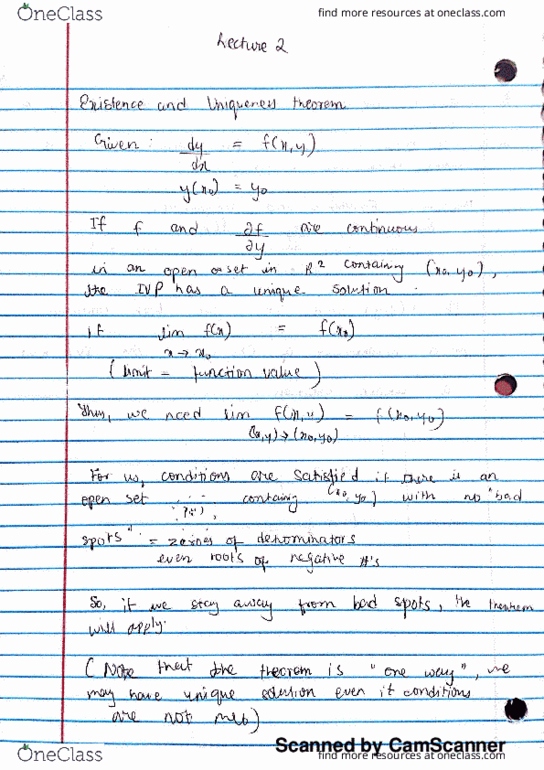 OneClass
find more resources at oneclass.com
Lecture 2
Existence and Uniqueness theorem
Given: dy/dx = f(x,y)
y(x₀) = y₀
If f and ∂f/∂y are continuous
in an open set in R² containing (x₀, y₀),
the IVP has a unique solution.
if lim x→x₀ f(x) = f(x₀)
(limit = function value)
Thus, we need lim (x,y)→(x₀,y₀) f(x,y) = f(x₀,y₀)
For us, conditions are satisfied if there is an
open set containing (x₀,y₀) with no "bad
spots" = zeroes of denominators
even roots of negative #'s
So, if we stay away from bad spots, the theorem
will apply.
(Note that the theorem is "one way", we
may have unique solution even if conditions
are not met)
Scanned by CamScanner
OneClass
find more resources at oneclass.com